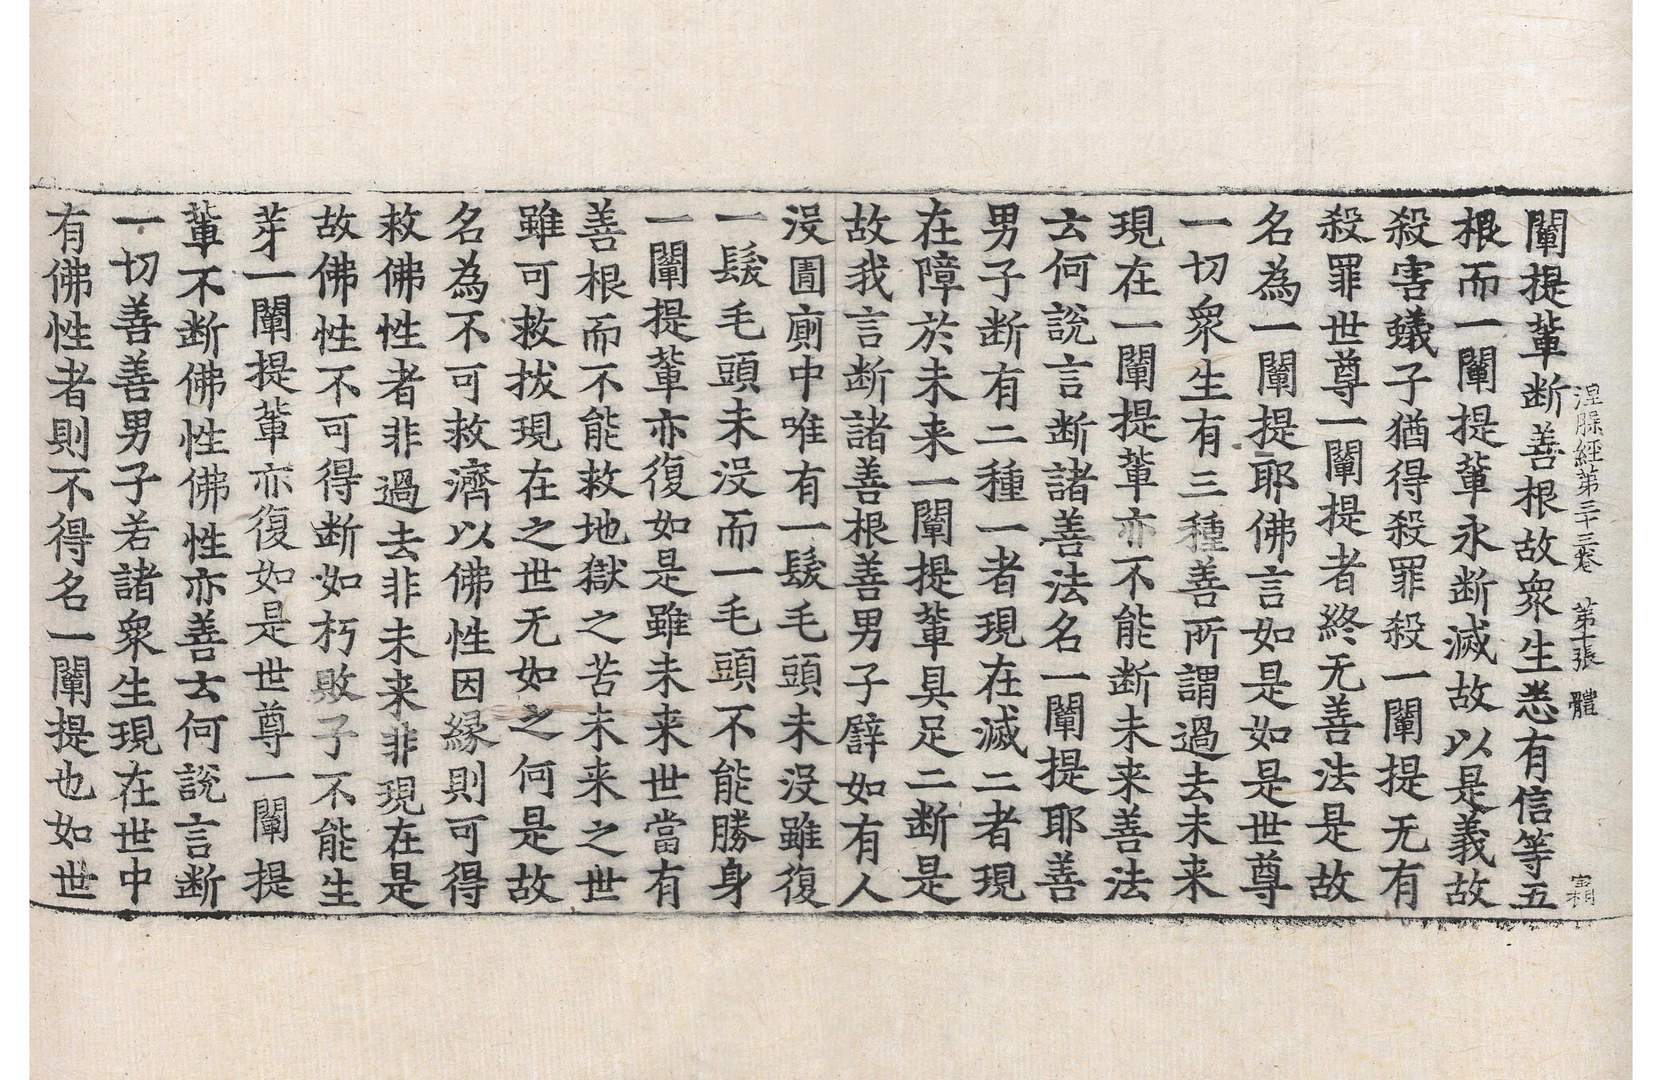 涅槃經第三十三卷 第十張 體
闡提輩断善根故衆生悉有信等五
根而一闡提輩永断滅故以是義故
殺害蟻子猶得殺罪殺一闡提无有
殺罪世尊一闡提者終无善法是故
名為一闡提耶佛言如是如是世尊
一切衆生有三種善所謂過去未来
現在一闡提輩亦不能断未来善法
云何說言断諸善法名一闡提耶善
男子断有二種一者現在滅二者現
在障於未来一闡提輩具足二断是
故我言断諸善根善男子譬如有人
没圊廁中唯有一髮毛頭未没雖復
一髮毛頭未没而一毛頭不能勝身
一闡提輩亦復如是雖未来世當有
善根而不能救地獄之苦未来之世
雖可救拔現在之世无如之何是故
名為不可救濟以佛性因緣則可得
救佛性者非過去非未来非現在是
故佛性不可得断如朽敗子不能生
芽一闡提輩亦復如是世尊一闡提
輩不断佛性佛性亦善云何說言断
一切善善男子若諸衆生現在世中
有佛性者則不得名一闡提也如世